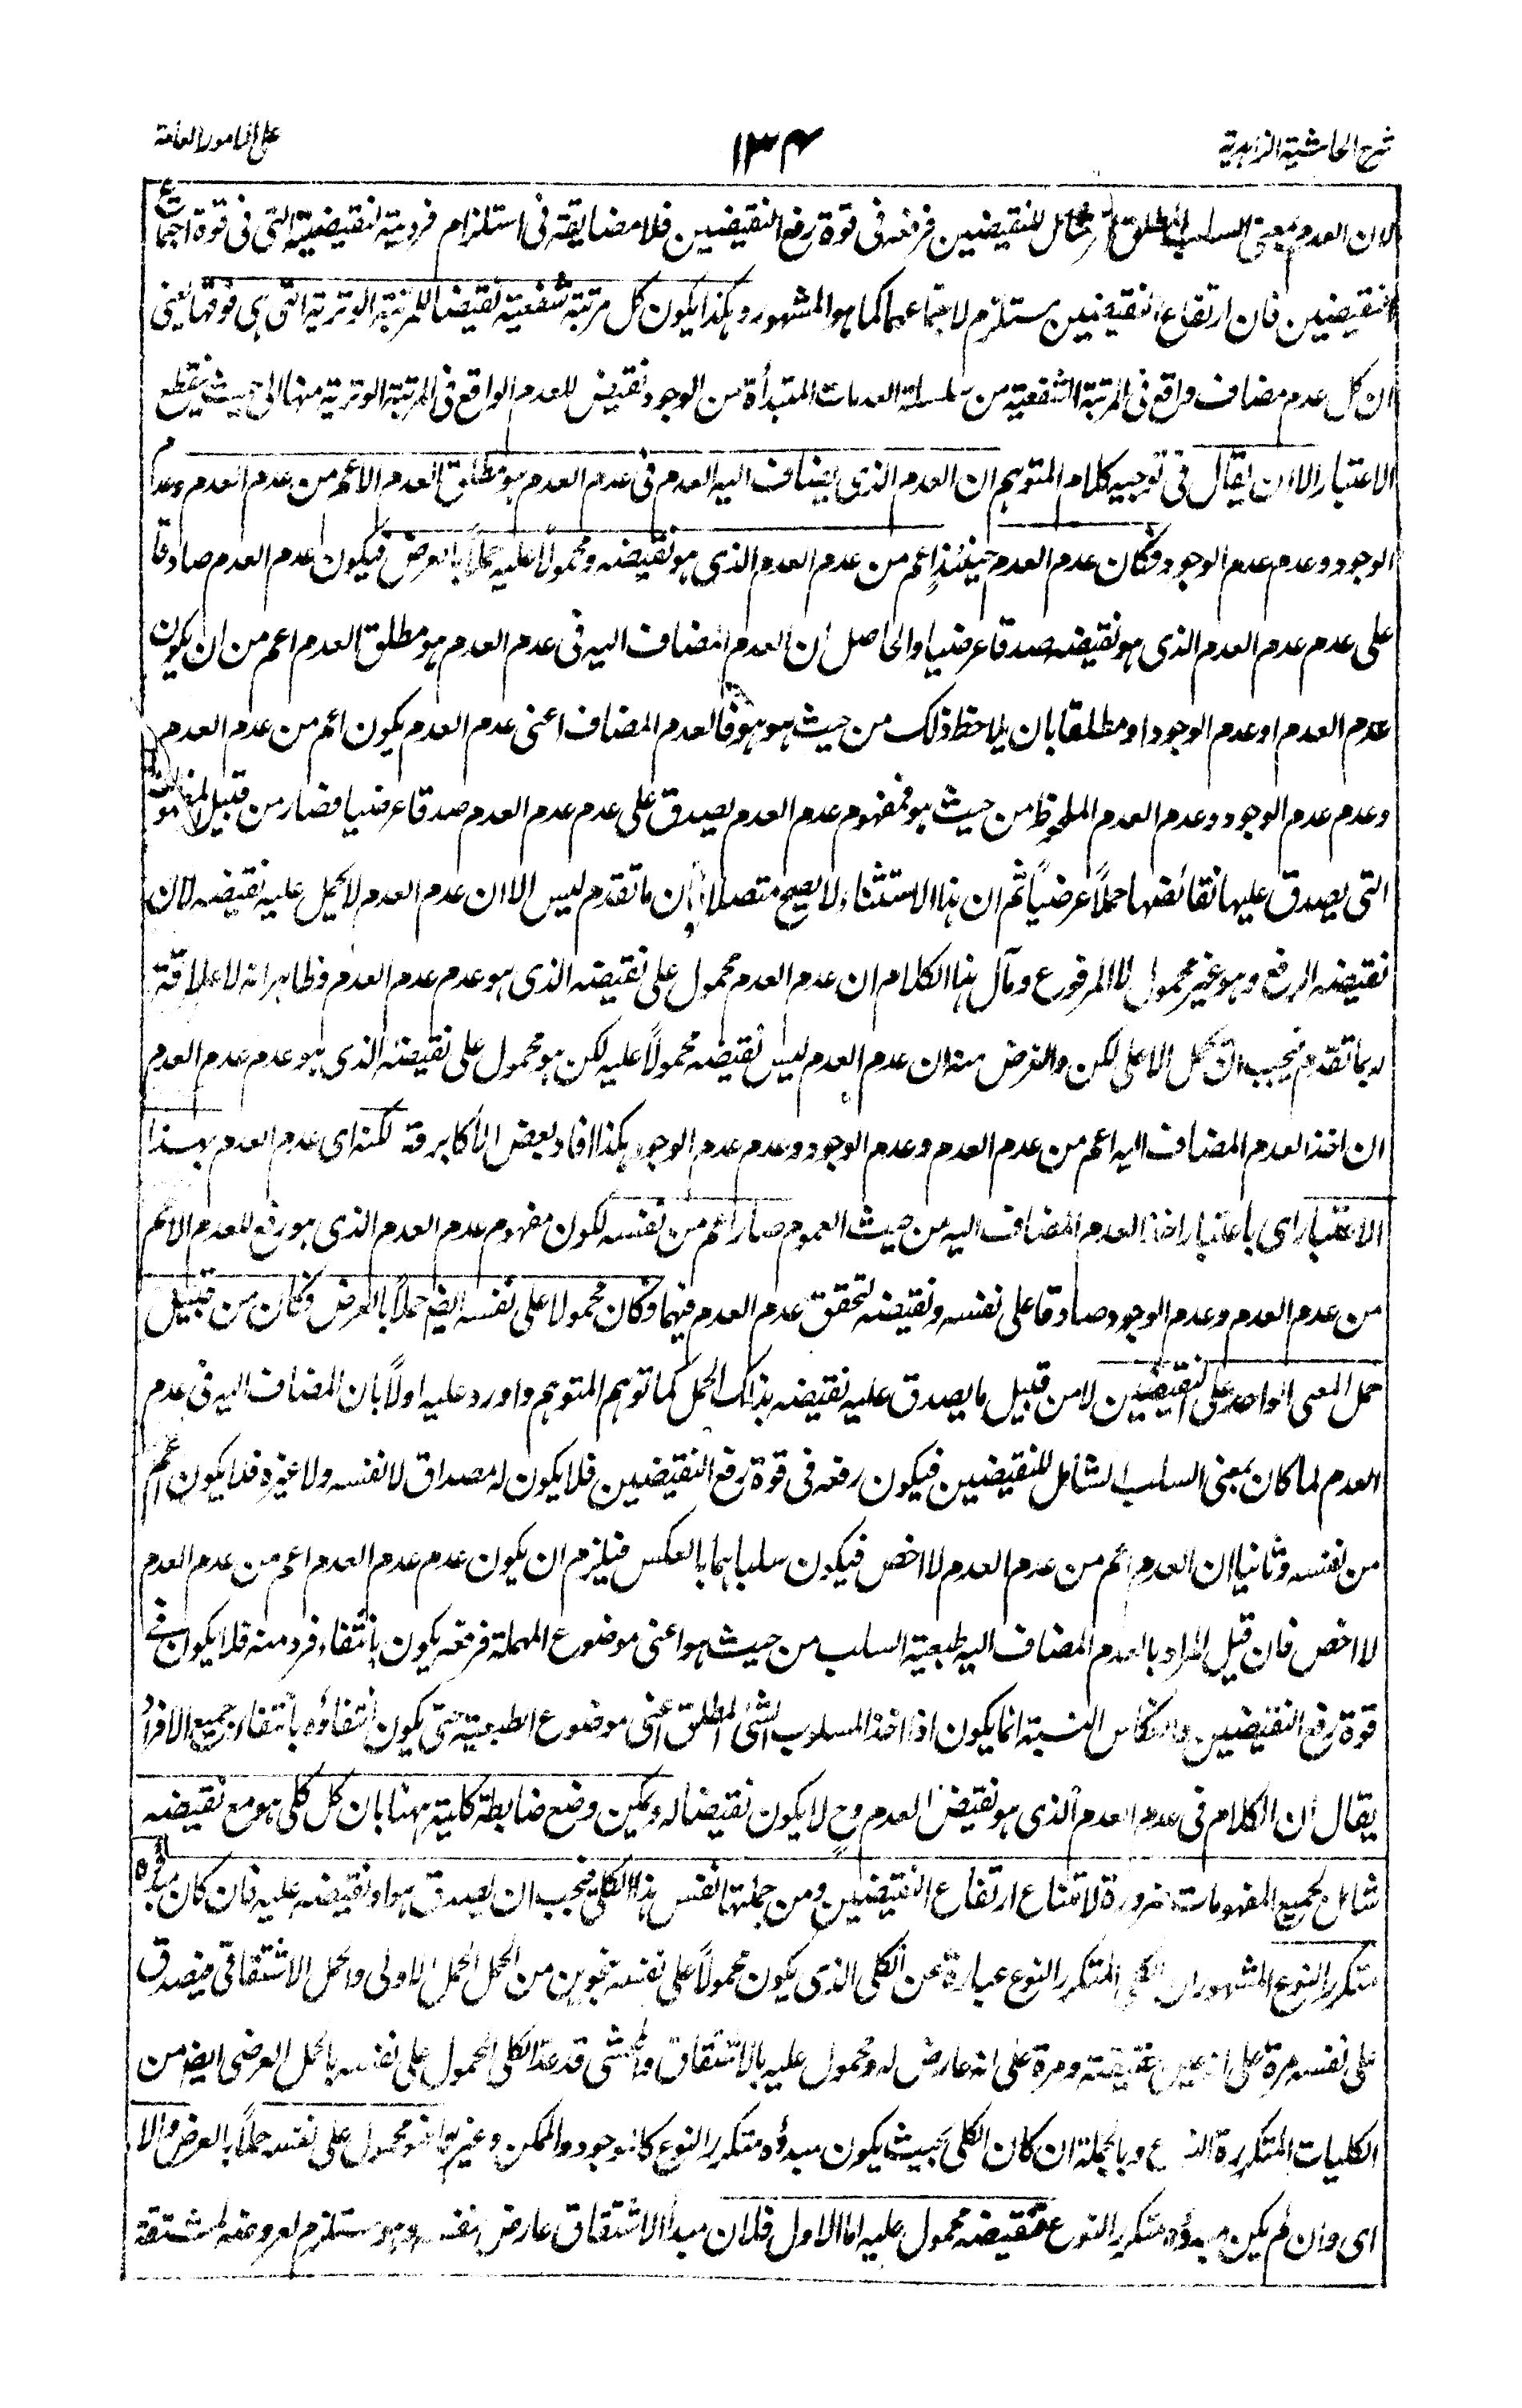 شرح الحاشية الزاهدية
١٣٤
على الامور العامة
لان العدم بمعنى السلب المطلق الشامل للنقيضين فرفعه فى قوة رفع النقيضين فلا مضايقة فى استلزام فردية لنقيضية التى فى قوة اجتماع
النقيضين فان ارتفاع النقيضين مستلزم لاجتماعهما كما هو المشهور وهكذا يكون كل مرتبة شفعية نقيضا للمرتبة الوترية التى هى فوقها يعنى
ان كل عدم مضاف واقع فى المرتبة الشفعية من سلسلة العدمات المبتدأة من الوجود نقيض للعدم الواقع فى المرتبة الوترية منها الى حيث ينقطع
الاعتبار الا ان يقال فى توجيه كلام المتوهم ان العدم الذى يضاف اليه العدم فى عدم العدم هو مطلق العدم الاعم من عدم العدم وعدم
الوجود وعدم عدم الوجود فكان عدم العدم حينئذ اعم من عدم العدم الذى هو نقيضه ومحمولا عليه حملاً بالعرض فيكون عدم العدم صادقا
على عدم عدم العدم الذى هو نقيضه صدقا عرضيا والحاصل ان العدم المضاف اليه فى عدم العدم هو مطلق العدم اعم من ان يكون
عدم العدم او عدم الوجود او مطلقا بان يلاحظ ذلك من حيث هو هو فالعدم المضاف اعنى عدم العدم يكون اعم من عدم العدم
وعدم عدم الوجود وعدم العدم الملحوظ من حيث هو فمفهوم عدم العدم يصدق على عدم عدم العدم صدقا عرضيا فصار من قبيل المفهومات
التى يصدق عليها نقائضها حملاً عرضياً ثم ان هذا الاستثناء لا يصح متصلا لان ما تقدم ليس الا ان عدم العدم لا يحمل عليه نقيضه لان
نقيضه الرفع وهو غير محمول لا المرفوع ومآل هذا الكلام ان عدم العدم محمول على نقيضه الذى هو عدم عدم العدم وظاهر انه لا علاقة
له بما تقدم فيجب ان يحمل الا على لكن والغرض منه ان عدم العدم ليس نقيضه محمولاً عليه لكن هو محمول على نقيضه الذى هو عدم عدم العدم
ان اخذ العدم المضاف اليه اعم من عدم العدم وعدم الوجود وعدم عدم الوجود هكذا افاد بعض الأكابر قه لكنه اى عدم العدم بهذا
الاعتبار اى باعتبار اخذ العدم المضاف اليه من حيث العموم صار اعم من نفسه لكون مفهوم عدم العدم الذى هو رفع للعدم الاعم
من عدم العدم وعدم الوجود صادقا على نفسه ونقيضه لتحقق عدم العدم فيهما وكان محمولا على نفسه ايضا حملاً بالعرض وكان من قبيل
حمل المعنى الواحد على النقيضين لا من قبيل ما يصدق عليه نقيضه بذلك الحمل كما توهم المتوهم واورد عليه اولاً بان المضاف اليه فى عدم
العدم لما كان بمعنى السلب الشامل للنقيضين فيكون رفعه فى قوة رفع النقيضين فلا يكون له مصداق لا نفسه ولا غيره فلا يكون اعم
من نفسه وثانيا ان العدم اعم من عدم العدم لا اخص فيكون سلباهما بالعكس فيلزم ان يكون عدم عدم العدم اعم من عدم العدم
لا اخص فان قيل المراد بالعدم المضاف اليه طبعية السلب من حيث هو اعنى موضوع المهملة فرفعه يكون بانتفاء فرد منه فلا يكون فى
قوة رفع النقيضين وانعكاس النسبة انما يكون اذا اخذ المسلوب الشئ المطلق اعنى موضوع الطبعية حتى يكون انتفاؤه بانتفاء جميع الافراد
يقال ان الكلام فى عدم العدم الذى هو نقيض العدم وح لا يكون نقيضا له ويمكن وضع ضابطة كلية ههنا بان كل كلى هو مع نقيضه
شامل لجميع المفهومات ضرورة لامتناع ارتفاع النقيضين ومن جملتها نفس هذا الكلى فيجب ان يصدق هو او نقيضه عليه فان كان مبدؤه
متكرر النوع المشهور ان الكلى المتكرر النوع عبارة عن الكلى الذى يكون محمولاً على نفسه بنحوين من الحمل الحمل الاولى والحمل الاشتقاقى فيصدق
على نفسه مرة على انه عين حقيقته ومرة على انه عارض له ومحمول عليه بالاشتقاق والمحشى قد عدّ الكلى المحمول على نفسه بالحمل العرضى ايضا من
الكليات المتكررة النوع وبالجملة ان كان الكلى بحيث يكون مبدؤه متكرر النوع كالموجود والممكن وغيرهما فهو محمول على نفسه حملاً بالعرض والا
اى وان لم يكن مبدؤه متكرر النوع فنقيضه محمول عليه اما الاول فلان مبدأ الاشتقاق عارض لنفسه وهو مستلزم لعروضه لمشتقه